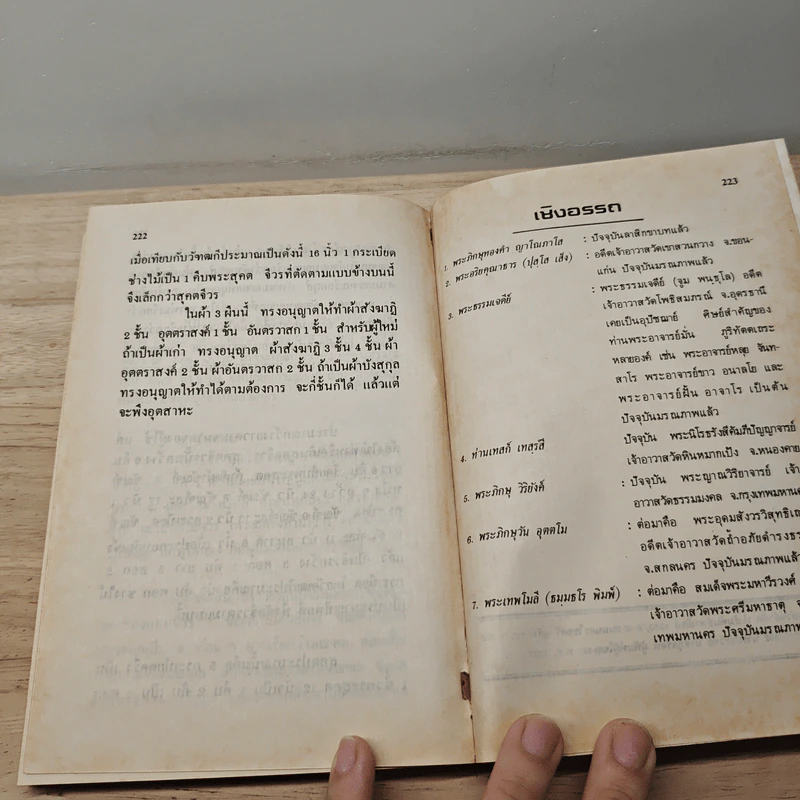 222
เมื่อเทียบกับวัฑฒกีประมาณเป็นดังนี้ 16 นิ้ว 1 กระเบียด
ช่างไม้เป็น 1 คืบพระสุคต จีวรที่ตัดตามแบบข้างบนนี้
จึงเล็กกว่าสุคตจีวร
ในผ้า 3 ผืนนี้ ทรงอนุญาตให้ทำผ้าสังฆาฏิ
2 ชั้น อุตตราสงค์ 1 ชั้น อันตรวาสก 1 ชั้น สำหรับผู้ใหม่
ถ้าเป็นผ้าเก่า ทรงอนุญาต ผ้าสังฆาฏิ 3 ชั้น 4 ชั้น ผ้า
อุตตราสงค์ 2 ชั้น ผ้าอันตรวาสก 2 ชั้น ถ้าเป็นผ้าบังสุกุล
ทรงอนุญาตให้ทำได้ตามต้องการ จะกี่ชั้นก็ได้ แล้วแต่
จะพึงอุตสาหะ
223
เชิงอรรถ
1. พระภิกษุทองคำ ญาโณภาโส : ปัจจุบันลาสิกขาบทแล้ว
2. พระอริยคุณาธาร (ปุสฺโส เส็ง) : อดีตเจ้าอาวาสวัดเขาสวนกวาง จ.ขอน-
แก่น ปัจจุบันมรณภาพแล้ว
3. พระธรรมเจดีย์ : พระธรรมเจดีย์ (จูม พนฺธุโล) อดีต
เจ้าอาวาสวัดโพธิสมภรณ์ จ.อุดรธานี
เคยเป็นอุปัชฌาย์ ศิษย์สำคัญของ
ท่านพระอาจารย์มั่น ภูริทัตตเถระ
หลายองค์ เช่น พระอาจารย์หลุย จันท-
สาโร พระอาจารย์ขาว อนาลโย และ
พระอาจารย์ฝั้น อาจาโร เป็นต้น
ปัจจุบันมรณภาพแล้ว
4. ท่านเทสก์ เทสฺรสี : ปัจจุบัน พระนิโรธรังสีคัมภีปัญญาจารย์
เจ้าอาวาสวัดหินหมากเป้ง จ.หนองคาย
5. พระภิกษุ วิริยังค์ : ปัจจุบัน พระญาณวิริยาจารย์ เจ้า
อาวาสวัดธรรมมงคล จ.กรุงเทพมหาน
6. พระภิกษุวัน อุตตโม : ต่อมาคือ พระอุดมสังวรวิสุทธิเถ
อดีตเจ้าอาวาสวัดถ้ำอภัยดำรงธร
จ.สกลนคร ปัจจุบันมรณภาพแล้ว
7. พระเทพโมลี (ธมฺมธโร พิมพ์) : ต่อมาคือ สมเด็จพระมหาวีรวงศ์
เจ้าอาวาสวัดพระศรีมหาธาตุ จ
เทพมหานคร ปัจจุบันมรณภาพ